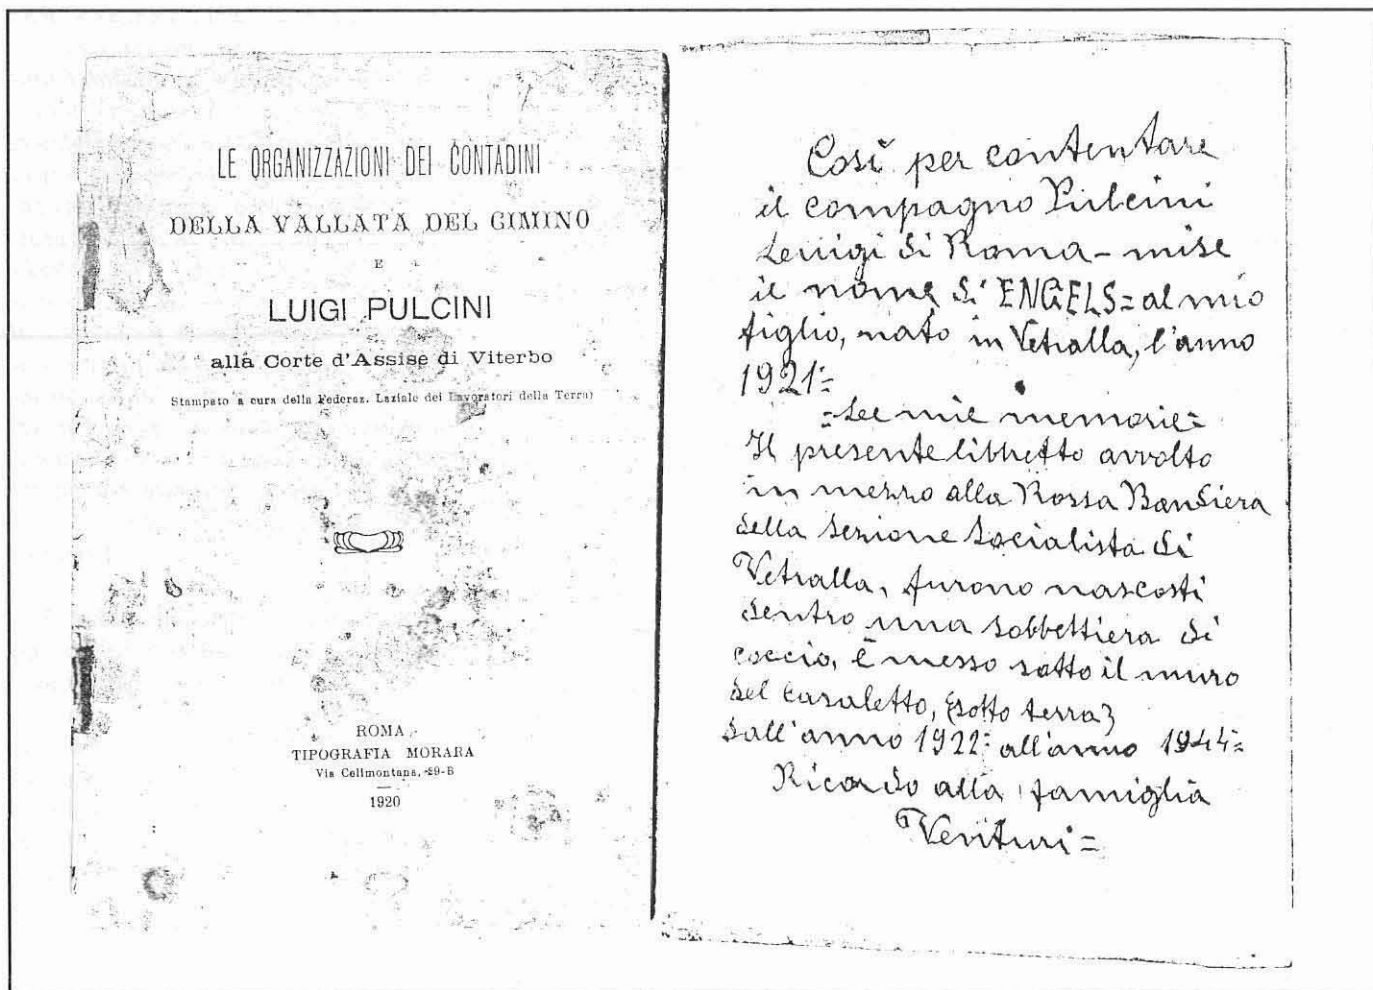 LE ORGANIZZAZIONI DEI CONTADINI
DELLA VALLATA DEL CIMINO
E
LUIGI PULCINI
alla Corte d'Assise di Viterbo
Stampato a cura della Federaz. Laziale dei Lavoratori della Terra)
ROMA
TIPOGRAFIA MORARA
Via Celimontana, 29-B
1920
Così per contentare
il compagno Pulcini
Luigi di Roma - mise
il nome di ENGELS = al mio
figlio, nato in Vetralla, l'anno
1921=
=Le mie memorie=
Il presente libretto avvolto
in mezzo alla Rossa Bandiera
della sezione Socialista di
Vetralla, furono nascosti
dentro una sobbettiera di
coccio, è messo sotto il muro
del casaletto, {sotto terra}
dall'anno 1922= all'anno 1944=
Ricordo alla famiglia
Venturi =